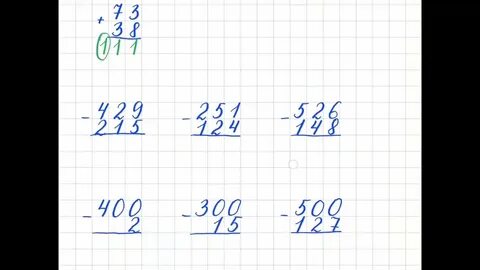 + 73
38
111
- 429 - 251 - 526
215 124 148
- 400 - 300 - 500
2 15 127